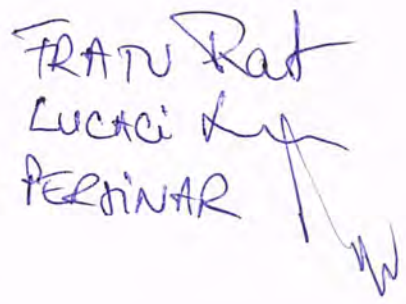 FRATU
LUCACi
PERJINAR